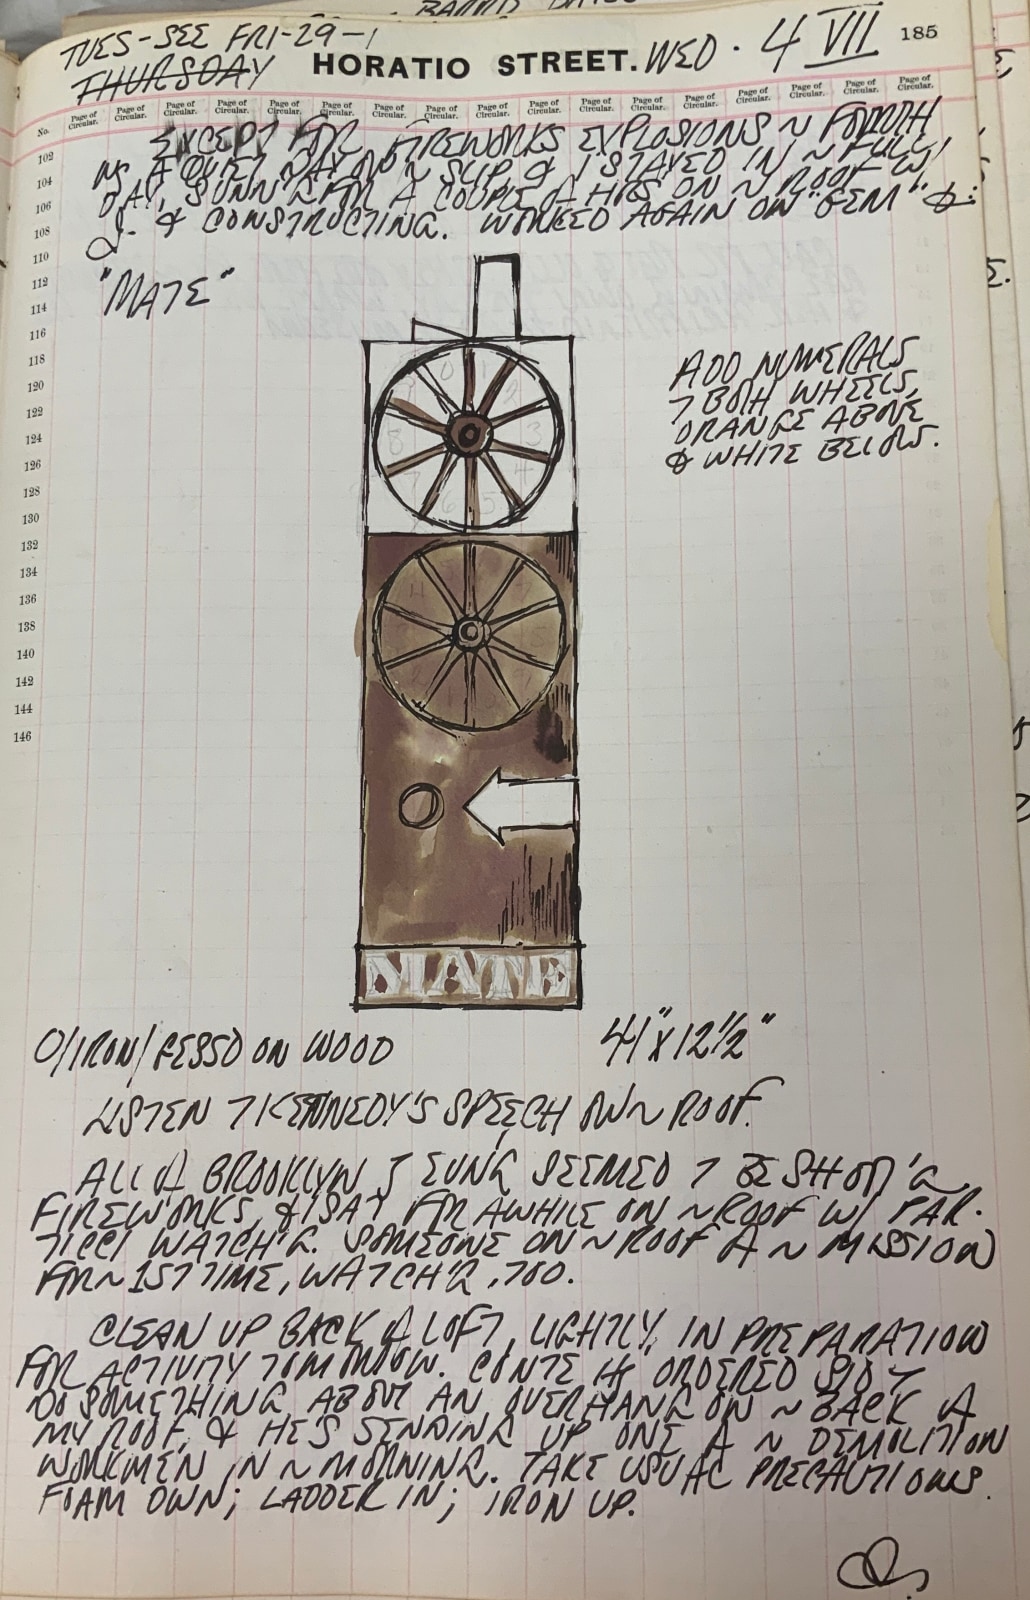 TUES-SEE FRI-29-1
THURSDAY HORATIO STREET. WED. 4 VII 185
No. Page of Circular. Page of Circular. Page of Circular. Page of Circular. Page of Circular. Page of Circular. Page of Circular. Page of Circular. Page of Circular. Page of Circular. Page of Circular. Page of Circular. Page of Circular. Page of Circular. Page of Circular. Page of Circular. Page of Circular.
102
104
106
108
110
112
114
116
118
120
122
124
126
128
130
132
134
136
138
140
142
144
146
EXCEPT FOR FIREWORKS EXPLOSIONS ~ FOURTH
WS A QUIET DAY ON ~ SLIP, & I STAYED IN ~ FULL
DAY, SUNN'G FOR A COUPLE OF HRS ON ~ ROOF W/
J. & CONSTRUCTING. WORKED AGAIN ON "GEM" &:
"MATE"
ADD NUMERALS
7 BOTH WHEELS,
ORANGE ABOVE
& WHITE BELOW.
MATE
O/IRON/GESSO ON WOOD 41" X 12 1/2"
LISTEN 7 KENNEDY'S SPEECH ON ~ ROOF.
ALL OF BROOKLYN SEEMED 7 BE SHOOT'G
FIREWORKS, & I SAT FOR AWHILE ON ~ ROOF W/ PAR-
TICCI WATCH'G. SOMEONE ON ~ ROOF OF ~ MISSION
FOR ~ 1ST TIME, WATCH'G, TOO.
CLEAN UP BACK OF LOFT, LIGHTLY, IN PREPARATION
FOR ACTIVITY TOMORROW. CONTE HS ORDERED SID 7
DO SOMETHING ABOUT AN OVERHANG ON ~ BACK OF
MY ROOF, & HE'S SENDING UP ONE OF ~ DEMOLITION
WORKMEN IN ~ MORNING. TAKE USUAL PRECAUTIONS.
FOAM DOWN; LADDER IN; IRON UP.